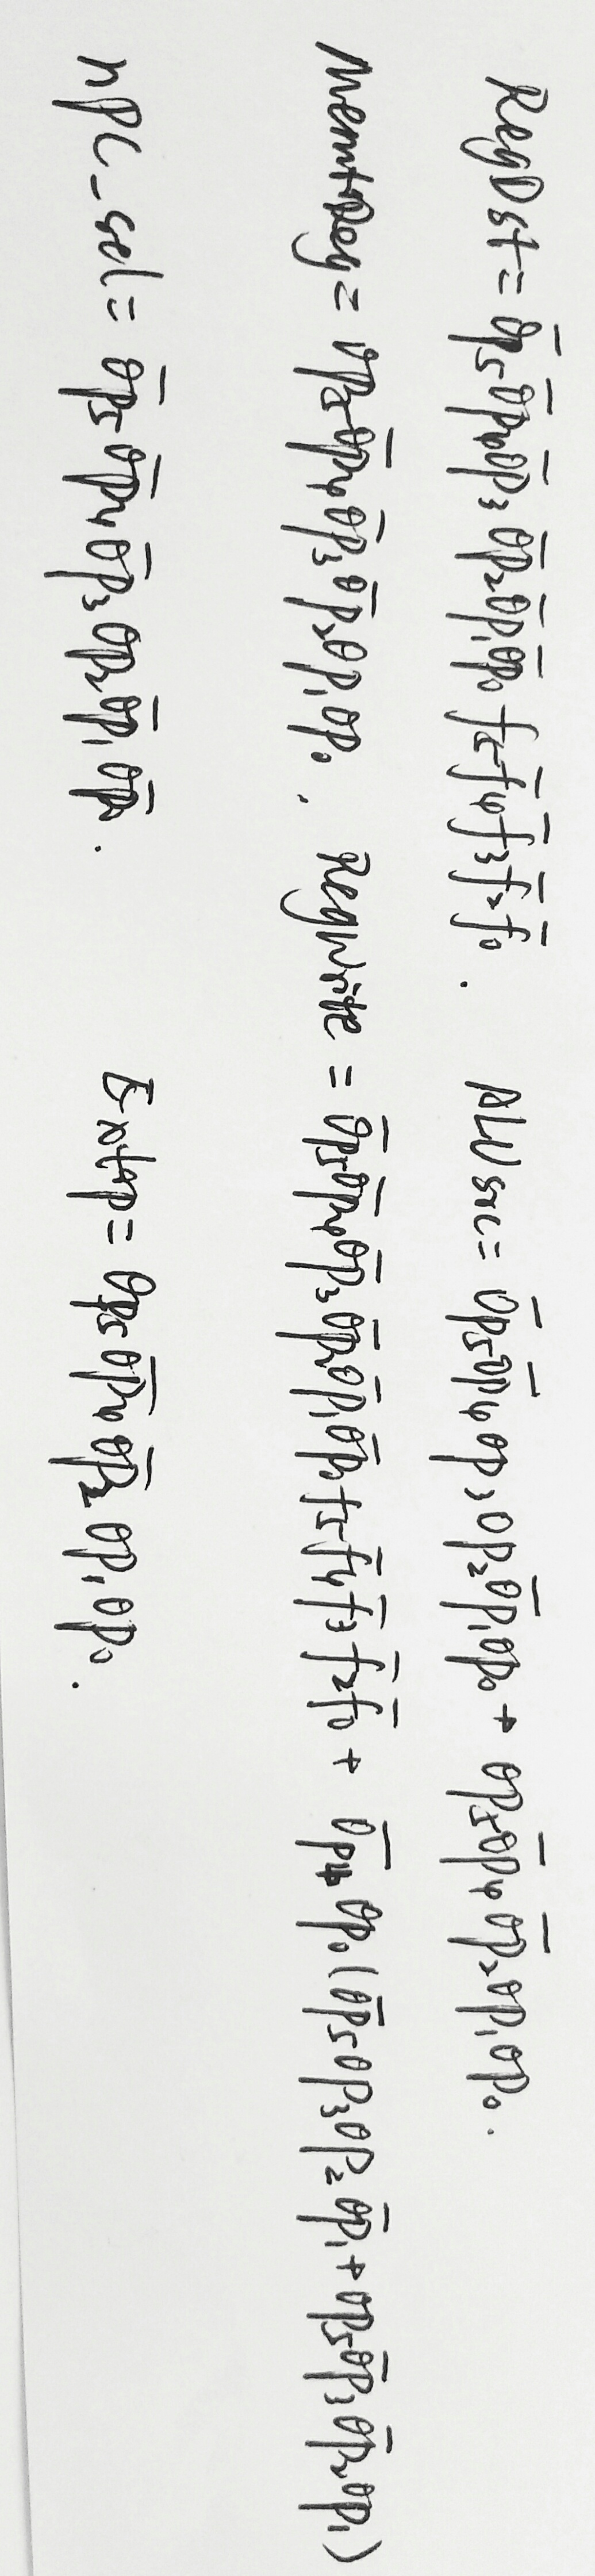 RegDst = o̅p̅₅o̅p̅₄o̅p̅₃o̅p̅₂o̅p̅₁o̅p̅₀f₅f̅₄f̅₃f̅₂f̅₀. ALUsrc = o̅p̅₅o̅p̅₄op₃op₂o̅p̅₁op₀ + op₅o̅p̅₄o̅p̅₂op₁op₀.
MemtoReg = op₅o̅p̅₄o̅p̅₃o̅p̅₂op₁op₀. RegWrite = o̅p̅₅o̅p̅₄o̅p̅₃o̅p̅₂o̅p̅₁o̅p̅₀f₅f̅₄f̅₃f̅₂f̅₀ + o̅p̅₄op₀(o̅p̅₅op₃op₂o̅p̅₁+op₅o̅p̅₃o̅p̅₂op₁)
nPC_sel = o̅p̅₅o̅p̅₄o̅p̅₃op₂o̅p̅₁o̅p̅₀. Extop = op₅o̅p̅₄o̅p̅₂op₁op₀.